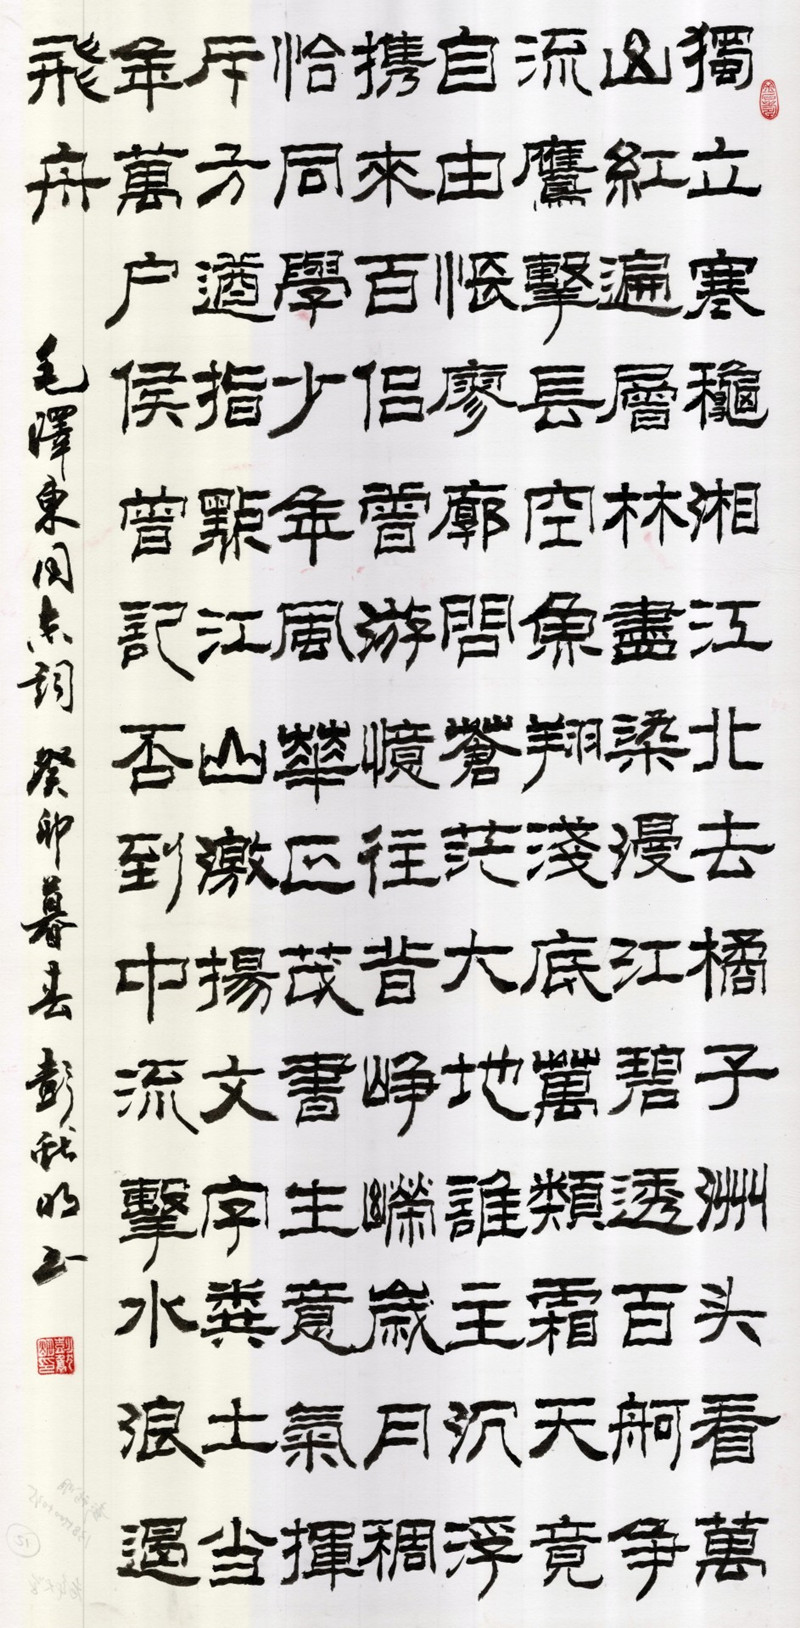 獨立寒穐湘江北去橘子洲头看萬
山紅遍層林盡染漫江碧透百舸争
流鷹擊長空魚翔淺底萬類霜天竟
自由悵廖廓問蒼茫大地誰主沉浮
携來百侣曾游憶往昔峥嶸歲月稠
恰同學少年風華正茂書生意氣揮
斥方遒指點江山激揚文字糞土当
年萬户侯曾記否到中流擊水浪遏
飛舟
毛澤東同志詞 癸卯暮春 彭 明书